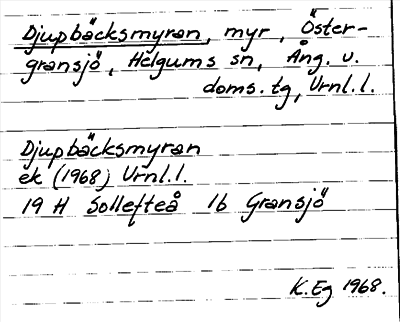 Djupbäcksmyran, myr, Öster-
gransjö, Helgums sn, Ång. v.
doms. tg, Vrnl. l.
Djupbäcksmyran
ek (1968) Vrnl. l.
19 H Sollefteå 1b Gransjö
K. Eg 1968.